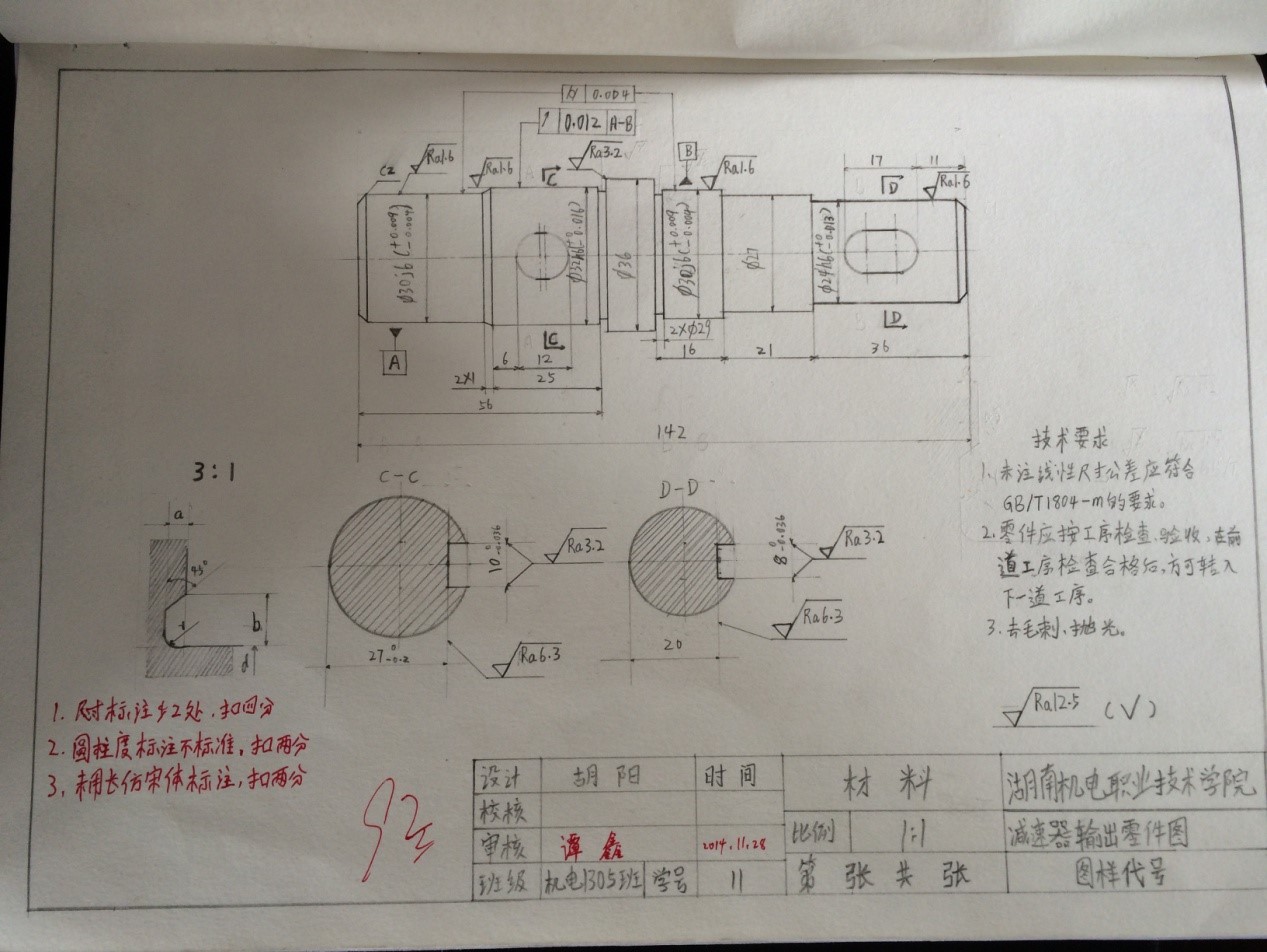 ⌭ 0.004
↗ 0.012 A-B
C2
Ra1.6
Ra1.6
C
Ra3.2
B
Ra1.6
17
11
D
Ra1.6
φ30j6(+0.009 -0.004)
φ32h6(+0 -0.016)
φ36
φ30j6(+0.009 -0.004)
φ27
φ24h6(+0 -0.013)
A
C
D
2×φ29
6
12
16
21
36
2×1
25
56
142
技术要求
1. 未注线性尺寸公差应符合
GB/T1804-m的要求。
2. 零件应按工序检查、验收,在前
道工序检查合格后,方可转入
下一道工序。
3. 去毛刺、抛光。
3:1
a
45°
r
b
d
C-C
10 0 -0.036
Ra3.2
27 0 -0.2
Ra6.3
D-D
8 0 -0.036
Ra3.2
20
Ra6.3
Ra12.5 (√)
1. 尺寸标注少2处,扣四分
2. 圆柱度标注不标准,扣两分
3. 未用长仿宋体标注,扣两分
92
设计 胡阳 时间 材料 湖南机电职业技术学院
校核
审核 谭鑫 2014.11.28 比例 1:1 减速器输出零件图
班级 机电1305班 学号 11 第 张 共 张 图样代号